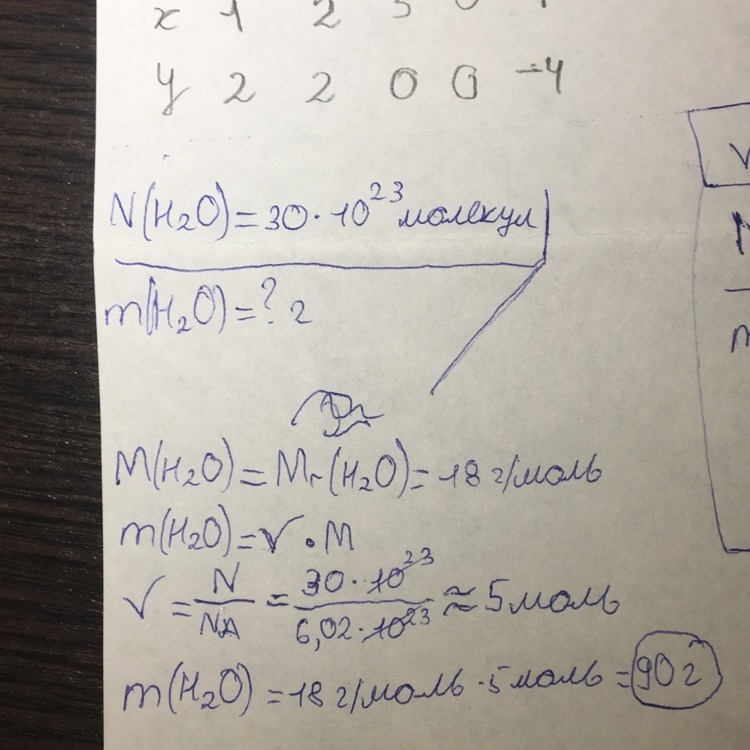 x 1 2
y 2 2 0 0 -4
N(H₂O) = 30 · 10²³ молекул
m(H₂O) = ? г
M(H₂O) = Mr(H₂O) = 18 г/моль
m(H₂O) = ν · M
ν = N/NA = 30 · 10²³/6,02 · 10²³ ≈ 5 моль
m(H₂O) = 18 г/моль · 5 моль = 90 г